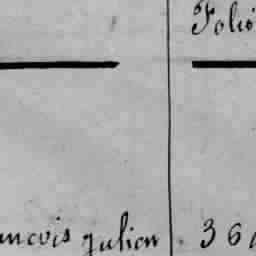 Folio
ancois julien 36